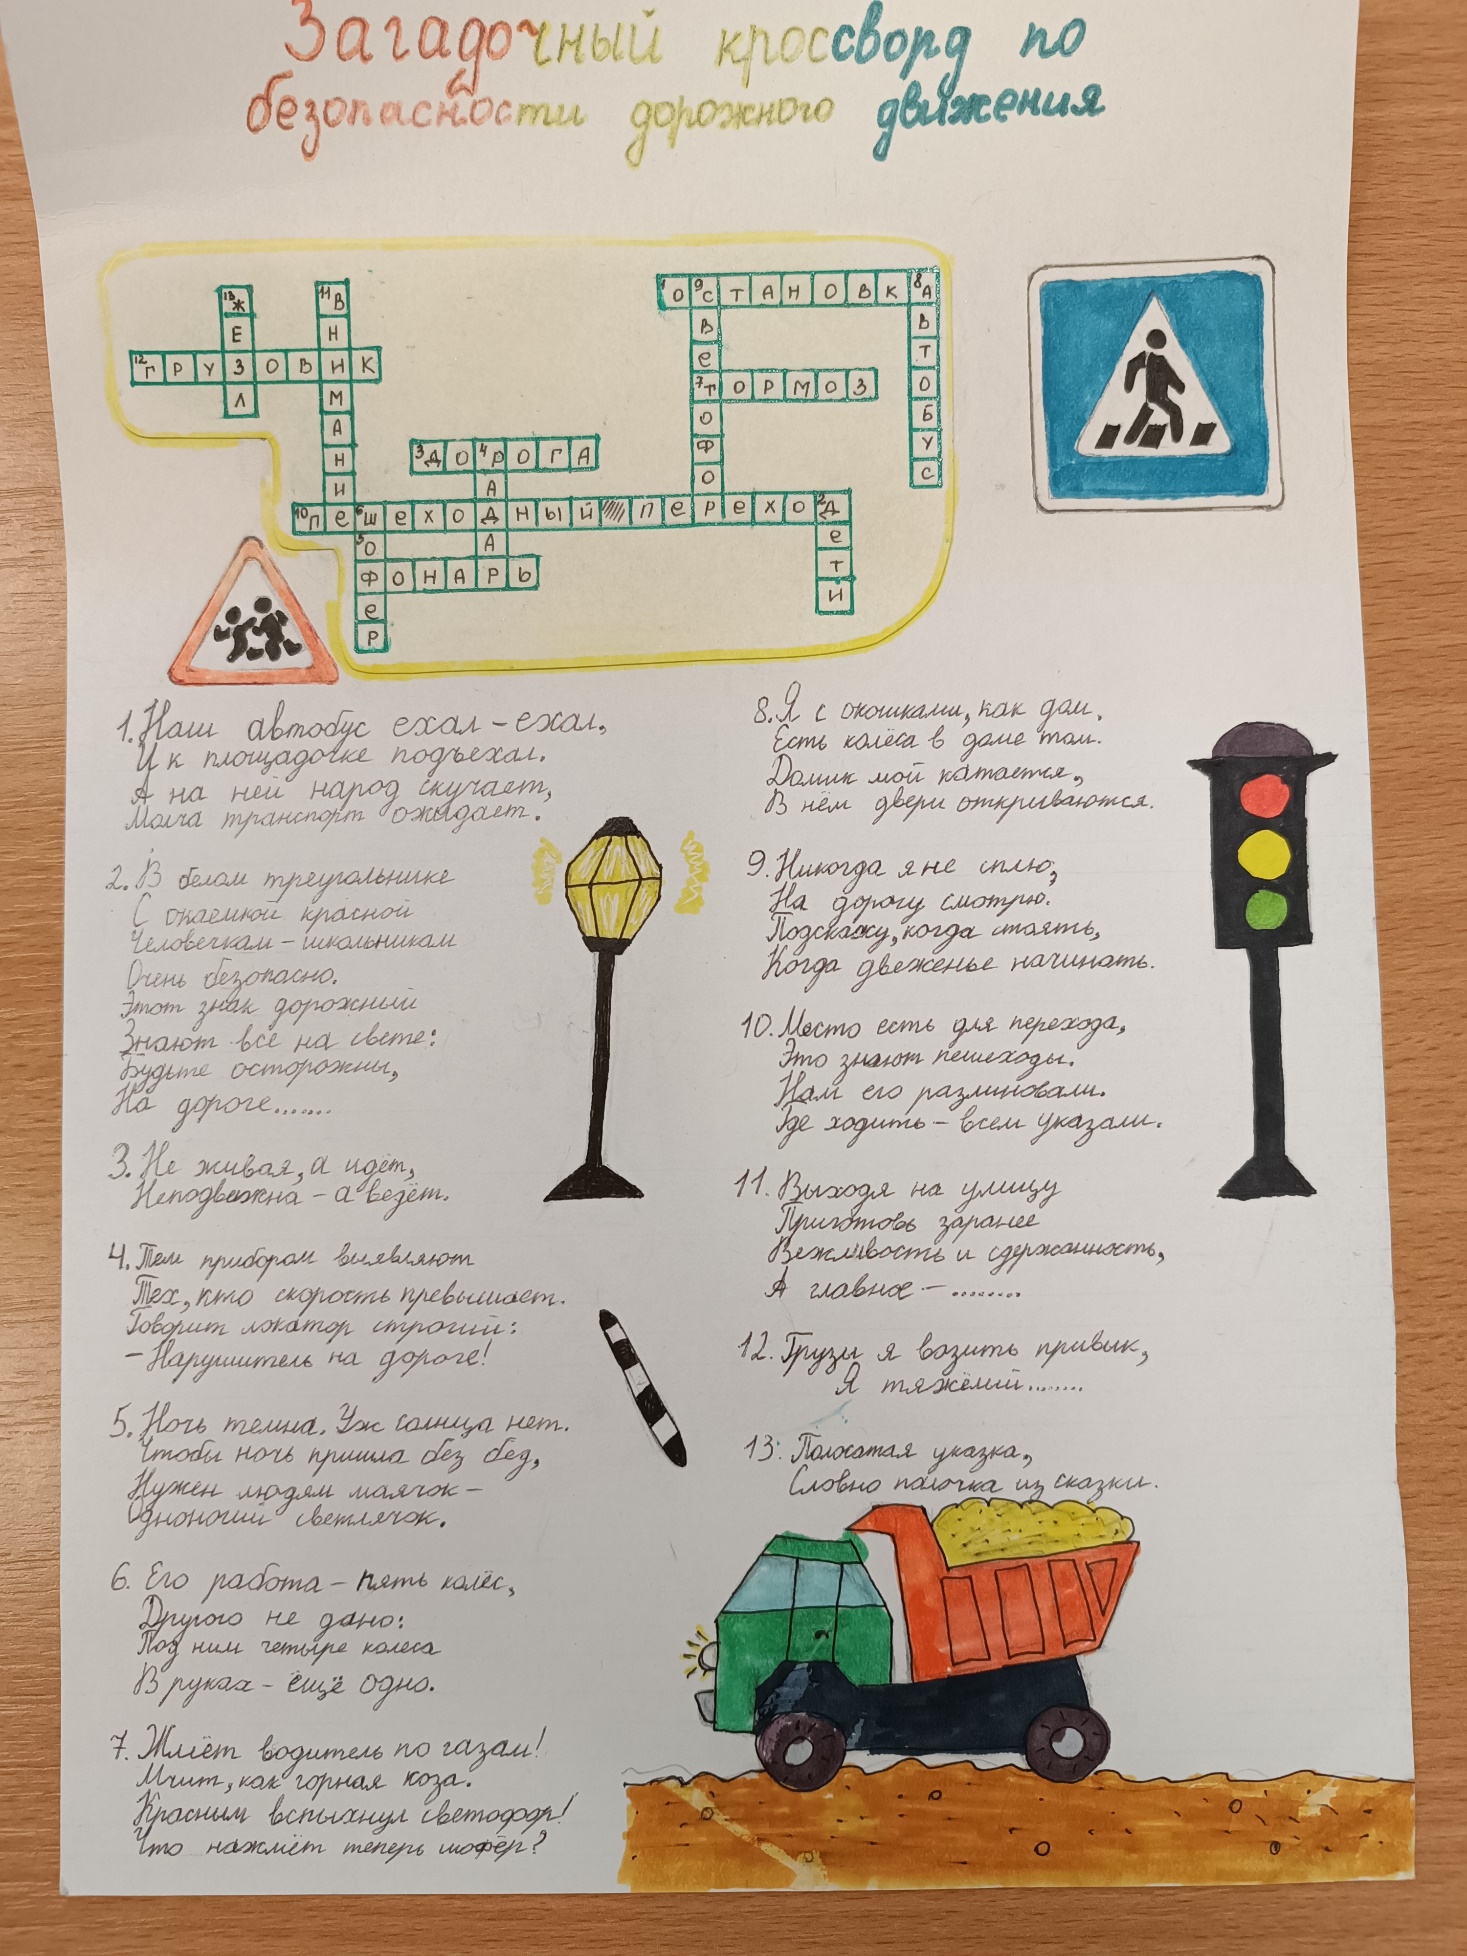 Загадочный кроссворд по
безопасности дорожного движения
13 Ж Е З Л
11 В Н И М А Н И Е
12 Г Р У З О В И К
1 О С Т А Н О В К А
9 С В Е Т О Ф О Р
8 А В Т О Б У С
7 Т О Р М О З
3 Д О Р О Г А
4 Р А Д А Р
10 П Е Ш Е Х О Д Н Ы Й П Е Р Е Х О Д
2 Д Е Т И
6 Ш О Ф Е Р
5 Ф О Н А Р Ь
1. Наш автобус ехал-ехал,
И к площадочке подъехал.
А на ней народ скучает,
Молча транспорт ожидает.
2. В белом треугольнике
С окаемкой красной
Человечкам-школьникам
Очень безопасно.
Этот знак дорожный
Знают все на свете:
Будьте осторожны,
На дороге.......
3. Не живая, а идёт,
Неподвижна - а ведёт.
4. Тем прибором выявляют
Тех, кто скорость превышает.
Говорит локатор строгий:
- Нарушитель на дороге!
5. Ночь темна. Уж солнца нет.
Чтобы ночь пришла без бед,
Нужен людям маячок -
Одноногий светлячок.
6. Его работа - пять колёс,
Другого не дано:
Под ним четыре колеса
В руках - ещё одно.
7. Жмёт водитель по газам!
Мчит, как горная коза.
Красным вспыхнул светофор!
Что нажмёт теперь шофёр?
8. Я с окошками, как дом,
Есть колёса в доме том.
Домик мой катается,
В нём двери открываются.
9. Никогда я не сплю,
На дорогу смотрю.
Подскажу, когда стоять,
Когда движенье начинать.
10. Место есть для перехода,
Это знают пешеходы.
Нам его разлиновали.
Где ходить - всем указали.
11. Выходя на улицу
Приготовь заранее
Вежливость и сдержанность,
А главное - ........
12. Грузы я возить привык,
Я тяжёлый........
13. Полосатая указка,
Словно палочка из сказки.